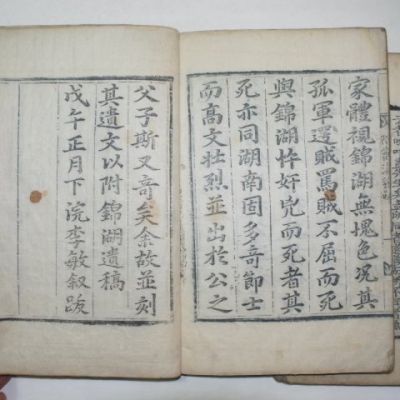 家體視錦湖無塊色况其
孤軍逆賊罵賊不屈而死
與錦湖忤奸兇而死者其
死亦同湖南固多奇節士
而高文壯烈並出於公之
父子斯又奇矣余故並刻
其遺文以附錦湖遺稿
戊午正月下浣李敏叙跋